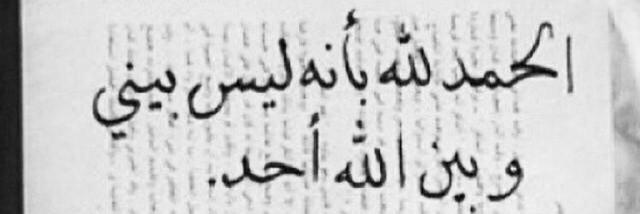 الحمد لله بأنه ليس بيني
و بين الله أحد.